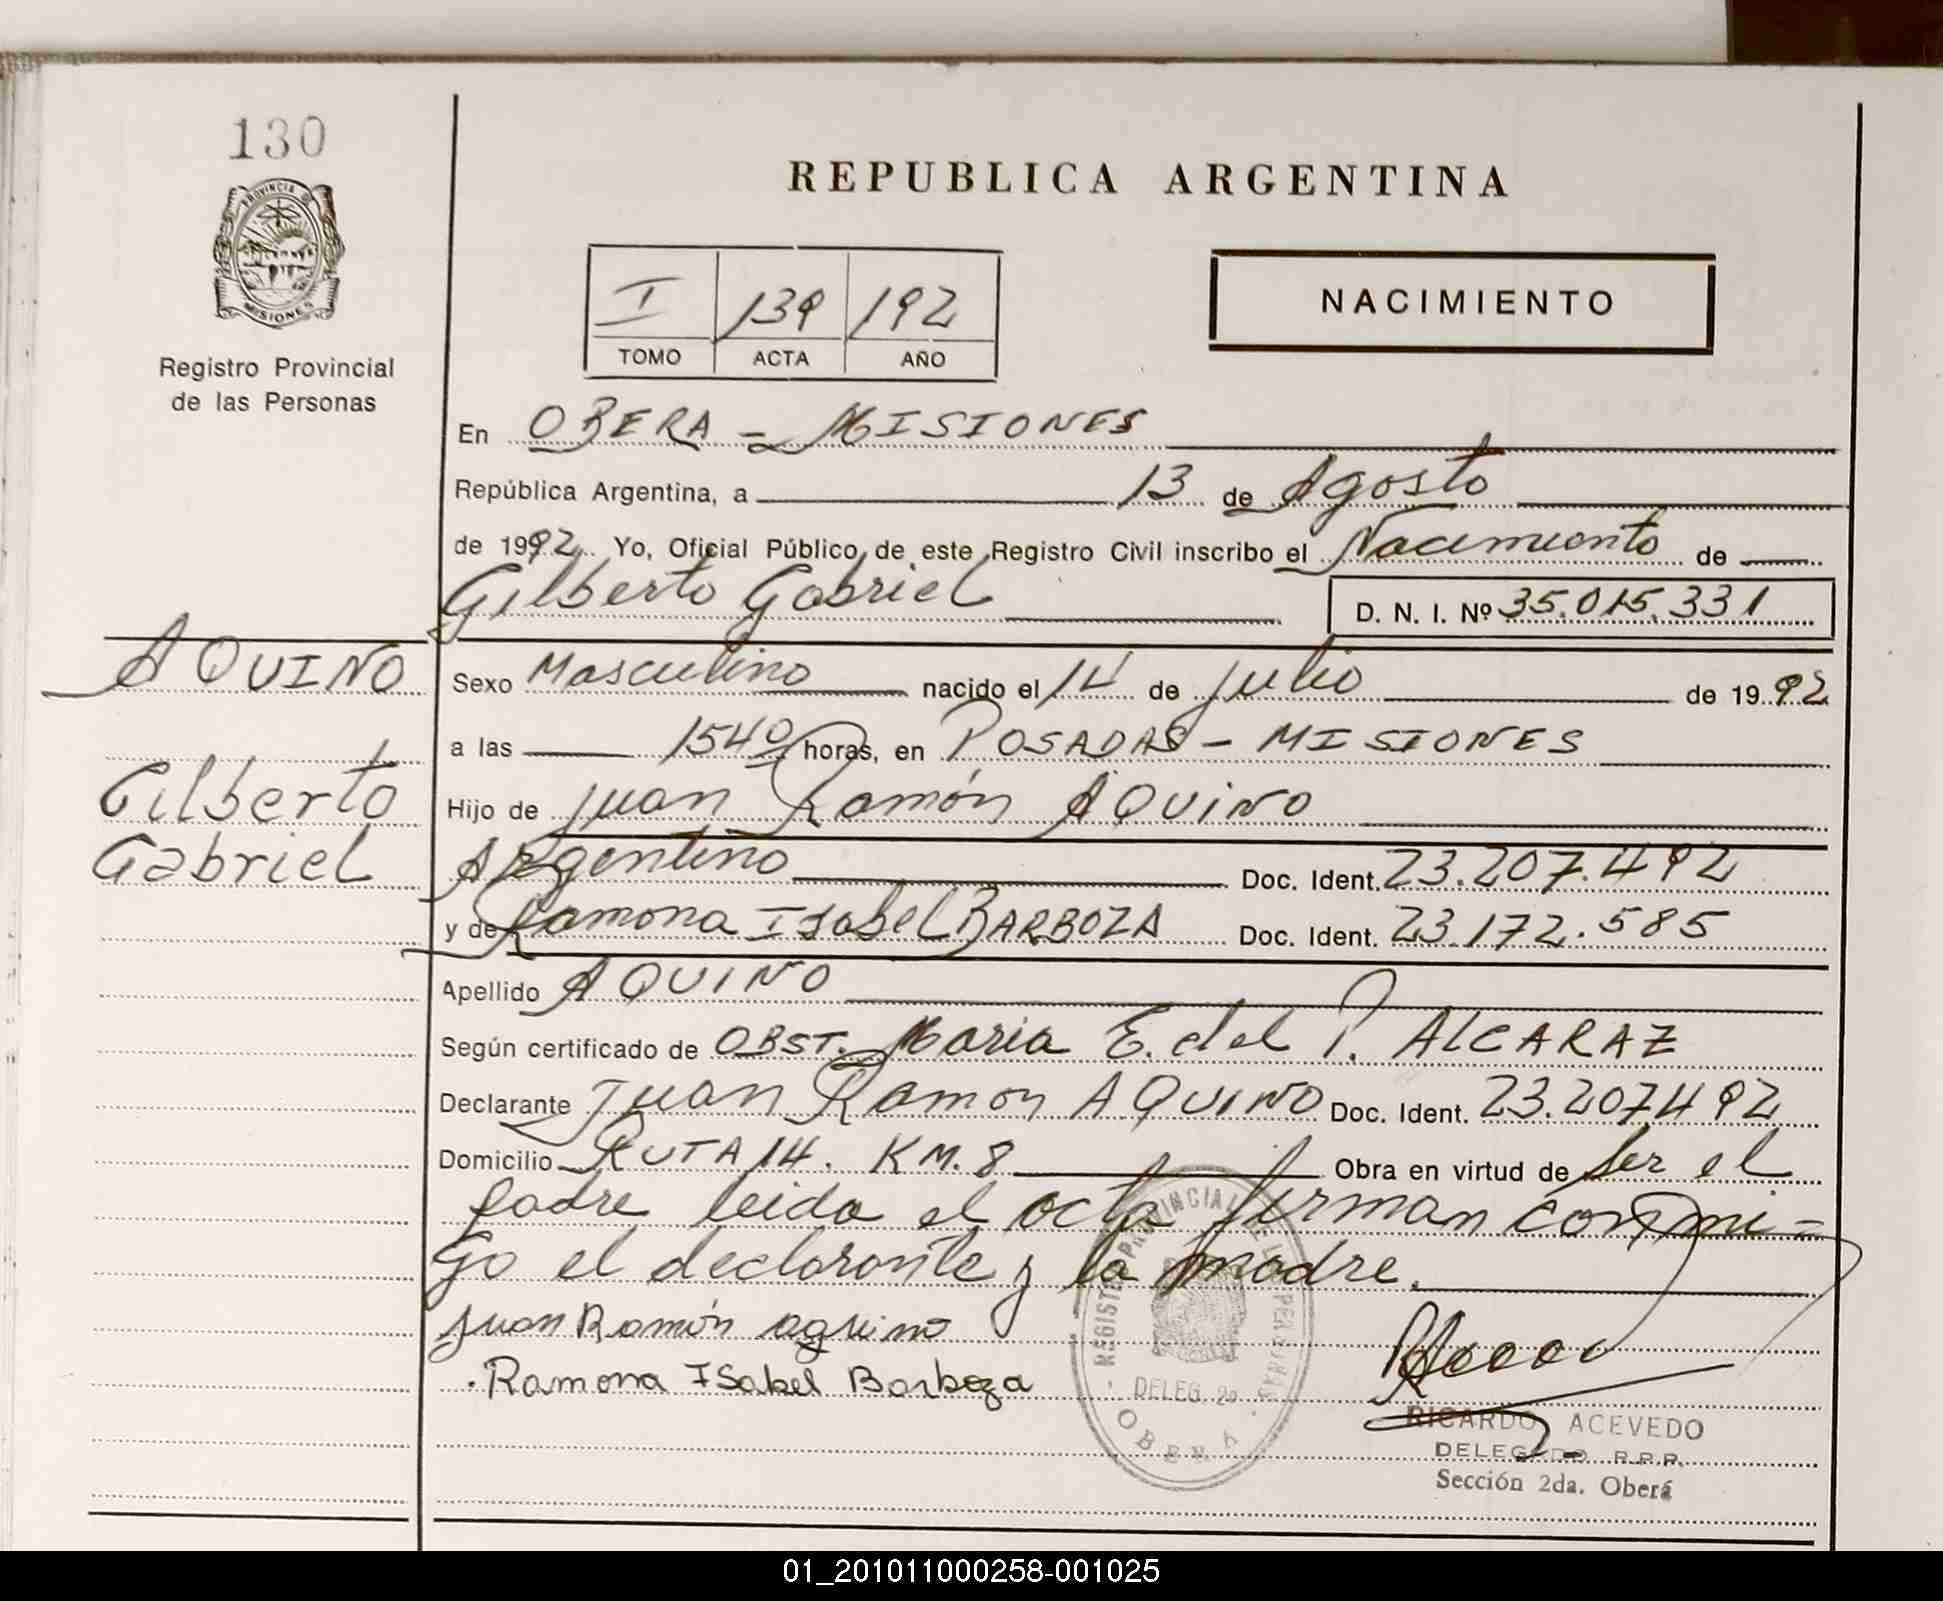 130
REPUBLICA ARGENTINA
PROVINCIA DE
MISIONES
Registro Provincial
de las Personas
I 139 192
TOMO ACTA AÑO
NACIMIENTO
En OBERA - MISIONES
República Argentina, a 13 de Agosto
de 1992 Yo, Oficial Público, de este Registro Civil inscribo el Nacimiento de
Gilberto Gabriel D. N. I. Nº 35.015.331
AQUINO
Gilberto
Gabriel
Sexo Masculino nacido el 14 de Julio de 1992
a las 1540 horas, en POSADAS - MISIONES
Hijo de Juan Ramón AQUINO
Argentino Doc. Ident. 23.207.492
y de Ramona ISabel BARBOZA Doc. Ident. 23.172.585
Apellido AQUINO
Según certificado de OBST. Maria E. del P. ALCARAZ
Declarante Juan Ramon AQUINO Doc. Ident. 23.207492
Domicilio RUTA 14. KM. 8 Obra en virtud de ser el
padre leida el acta firman conmi-
go el declarante y la madre.
Juan Ramón aquino
Ramona ISabel Barboza
REGISTRO PROVINCIAL DE LAS PERSONAS
DELEG. 2a
OBERA
RICARDO ACEVEDO
DELEGADO R.P.P.
Sección 2da. Oberá
01_201011000258-001025